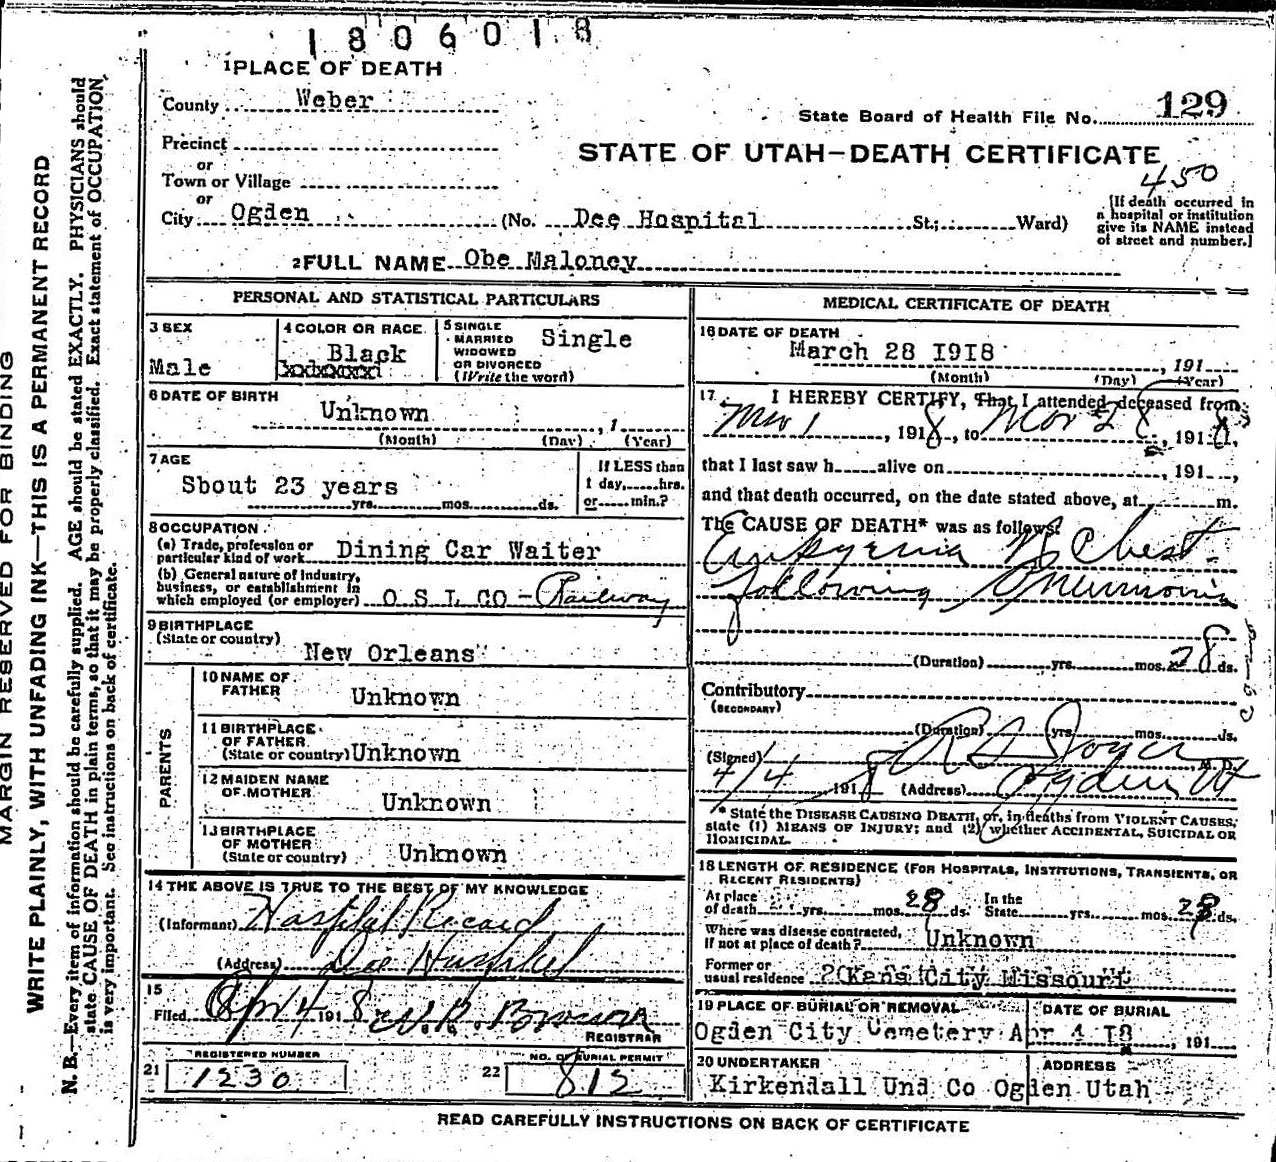 1806018
1 PLACE OF DEATH
County Weber
State Board of Health File No. 129
Precinct
or
Town or Village
or
City Ogden (No. Dee Hospital St.; Ward)
STATE OF UTAH—DEATH CERTIFICATE
450
[If death occurred in
a hospital or institution
give its NAME instead
of street and number.]
2 FULL NAME Obe Maloney
PERSONAL AND STATISTICAL PARTICULARS
3 SEX
Male
4 COLOR OR RACE
Black
5 SINGLE
MARRIED
WIDOWED
OR DIVORCED
(Write the word)
Single
6 DATE OF BIRTH
Unknown , 1
(Month) (Day) (Year)
7 AGE
Sbout 23 years
yrs. mos. ds.
If LESS than
1 day, hrs.
or min.?
8 OCCUPATION
(a) Trade, profession or
particular kind of work Dining Car Waiter
(b) General nature of industry,
business, or establishment in
which employed (or employer) O S L CO - Railway
9 BIRTHPLACE
(State or country)
New Orleans
PARENTS
10 NAME OF
FATHER
Unknown
11 BIRTHPLACE
OF FATHER
(State or country) Unknown
12 MAIDEN NAME
OF MOTHER
Unknown
13 BIRTHPLACE
OF MOTHER
(State or country) Unknown
14 THE ABOVE IS TRUE TO THE BEST OF MY KNOWLEDGE
(Informant) Hospital Record
(Address) Dee Hospital
15
Filed Apr 4 1918 W. P. Browson
REGISTRAR
REGISTERED NUMBER
21 1230
NO. OF BURIAL PERMIT
22 812
MEDICAL CERTIFICATE OF DEATH
16 DATE OF DEATH
March 28 1918 , 191
(Month) (Day) (Year)
17 I HEREBY CERTIFY, That I attended deceased from
Mar 1 , 1918, to Mar 28 , 1918,
that I last saw h alive on , 191 ,
and that death occurred, on the date stated above, at m.
The CAUSE OF DEATH* was as follows:
Empyema Chest
following Pneumonia
(Duration) yrs. mos. 28 ds.
Contributory
(SECONDARY)
(Duration) yrs. mos. ds.
(Signed) M. D.
4/4 1918 (Address) Ogden Ut
* State the DISEASE CAUSING DEATH, or, in deaths from VIOLENT CAUSES,
state (1) MEANS OF INJURY; and (2) whether ACCIDENTAL, SUICIDAL OR
HOMICIDAL.
18 LENGTH OF RESIDENCE (FOR HOSPITALS, INSTITUTIONS, TRANSIENTS, OR
RECENT RESIDENTS)
At place
of death yrs. mos. 28 ds.
In the
State yrs. mos. 28 ds.
Where was disease contracted,
If not at place of death? Unknown
Former or
usual residence ? Kans City Missouri
19 PLACE OF BURIAL OR REMOVAL
Ogden City Cemetery
DATE OF BURIAL
Apr 4 18 , 191
20 UNDERTAKER
Kirkendall Und Co
ADDRESS
Ogden Utah
READ CAREFULLY INSTRUCTIONS ON BACK OF CERTIFICATE
MARGIN RESERVED FOR BINDING
WRITE PLAINLY, WITH UNFADING INK—THIS IS A PERMANENT RECORD
N. B.—Every item of information should be carefully supplied. AGE should be stated EXACTLY. PHYSICIANS should
state CAUSE OF DEATH in plain terms, so that it may be properly classified. Exact statement of OCCUPATION
is very important. See instructions on back of certificate.